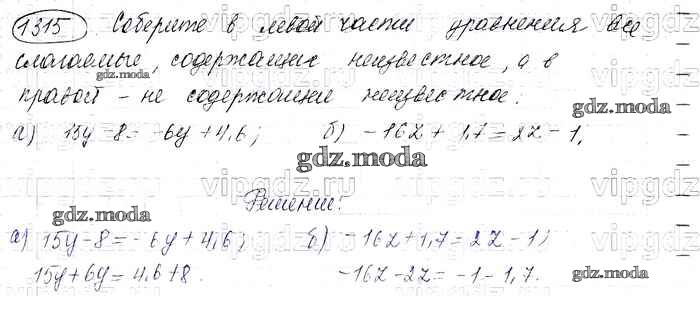 1315 Соберите в левой части уравнения все
слагаемые, содержащие неизвестное, а в
правой - не содержащие неизвестное:
а) 15y - 8 = -6y + 4,6; б) -16z + 1,7 = 2z - 1.
Решение:
а) 15y - 8 = -6y + 4,6; б) -16z + 1,7 = 2z - 1;
15y + 6y = 4,6 + 8. -16z - 2z = -1 - 1,7.
gdz.moda
gdz.moda
gdz.moda
gdz.moda
gdz.moda
vipgdz.ru
vipgdz.ru
vipgdz.ru